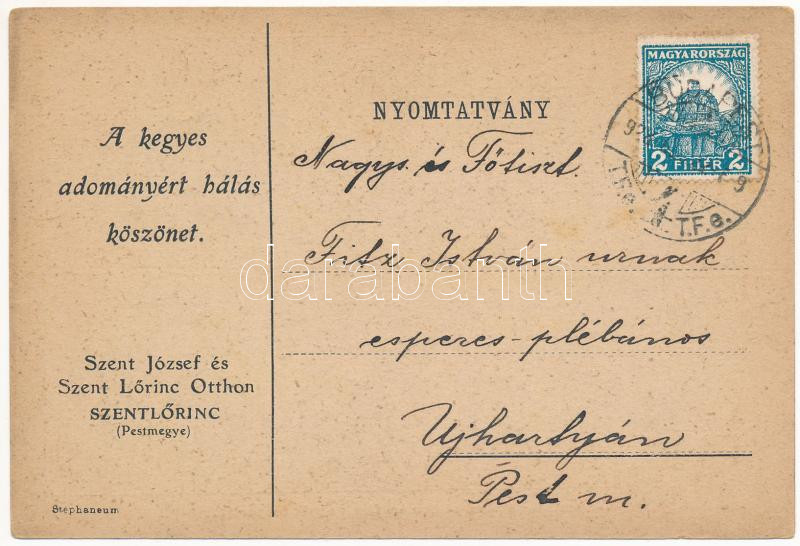 A kegyes
adományért hálás
köszönet.
Szent József és
Szent Lőrinc Otthon
SZENTLŐRINC
(Pestmegye)
Stephaneum
NYOMTATVÁNY
Nagys. és Főtiszt.
Fitz István urnak
esperes-plébános
Ujhartyán
Pest m.
MAGYARORSZÁG
2 FILLÉR 2
BUDAPEST
T.F.e.
darabanth